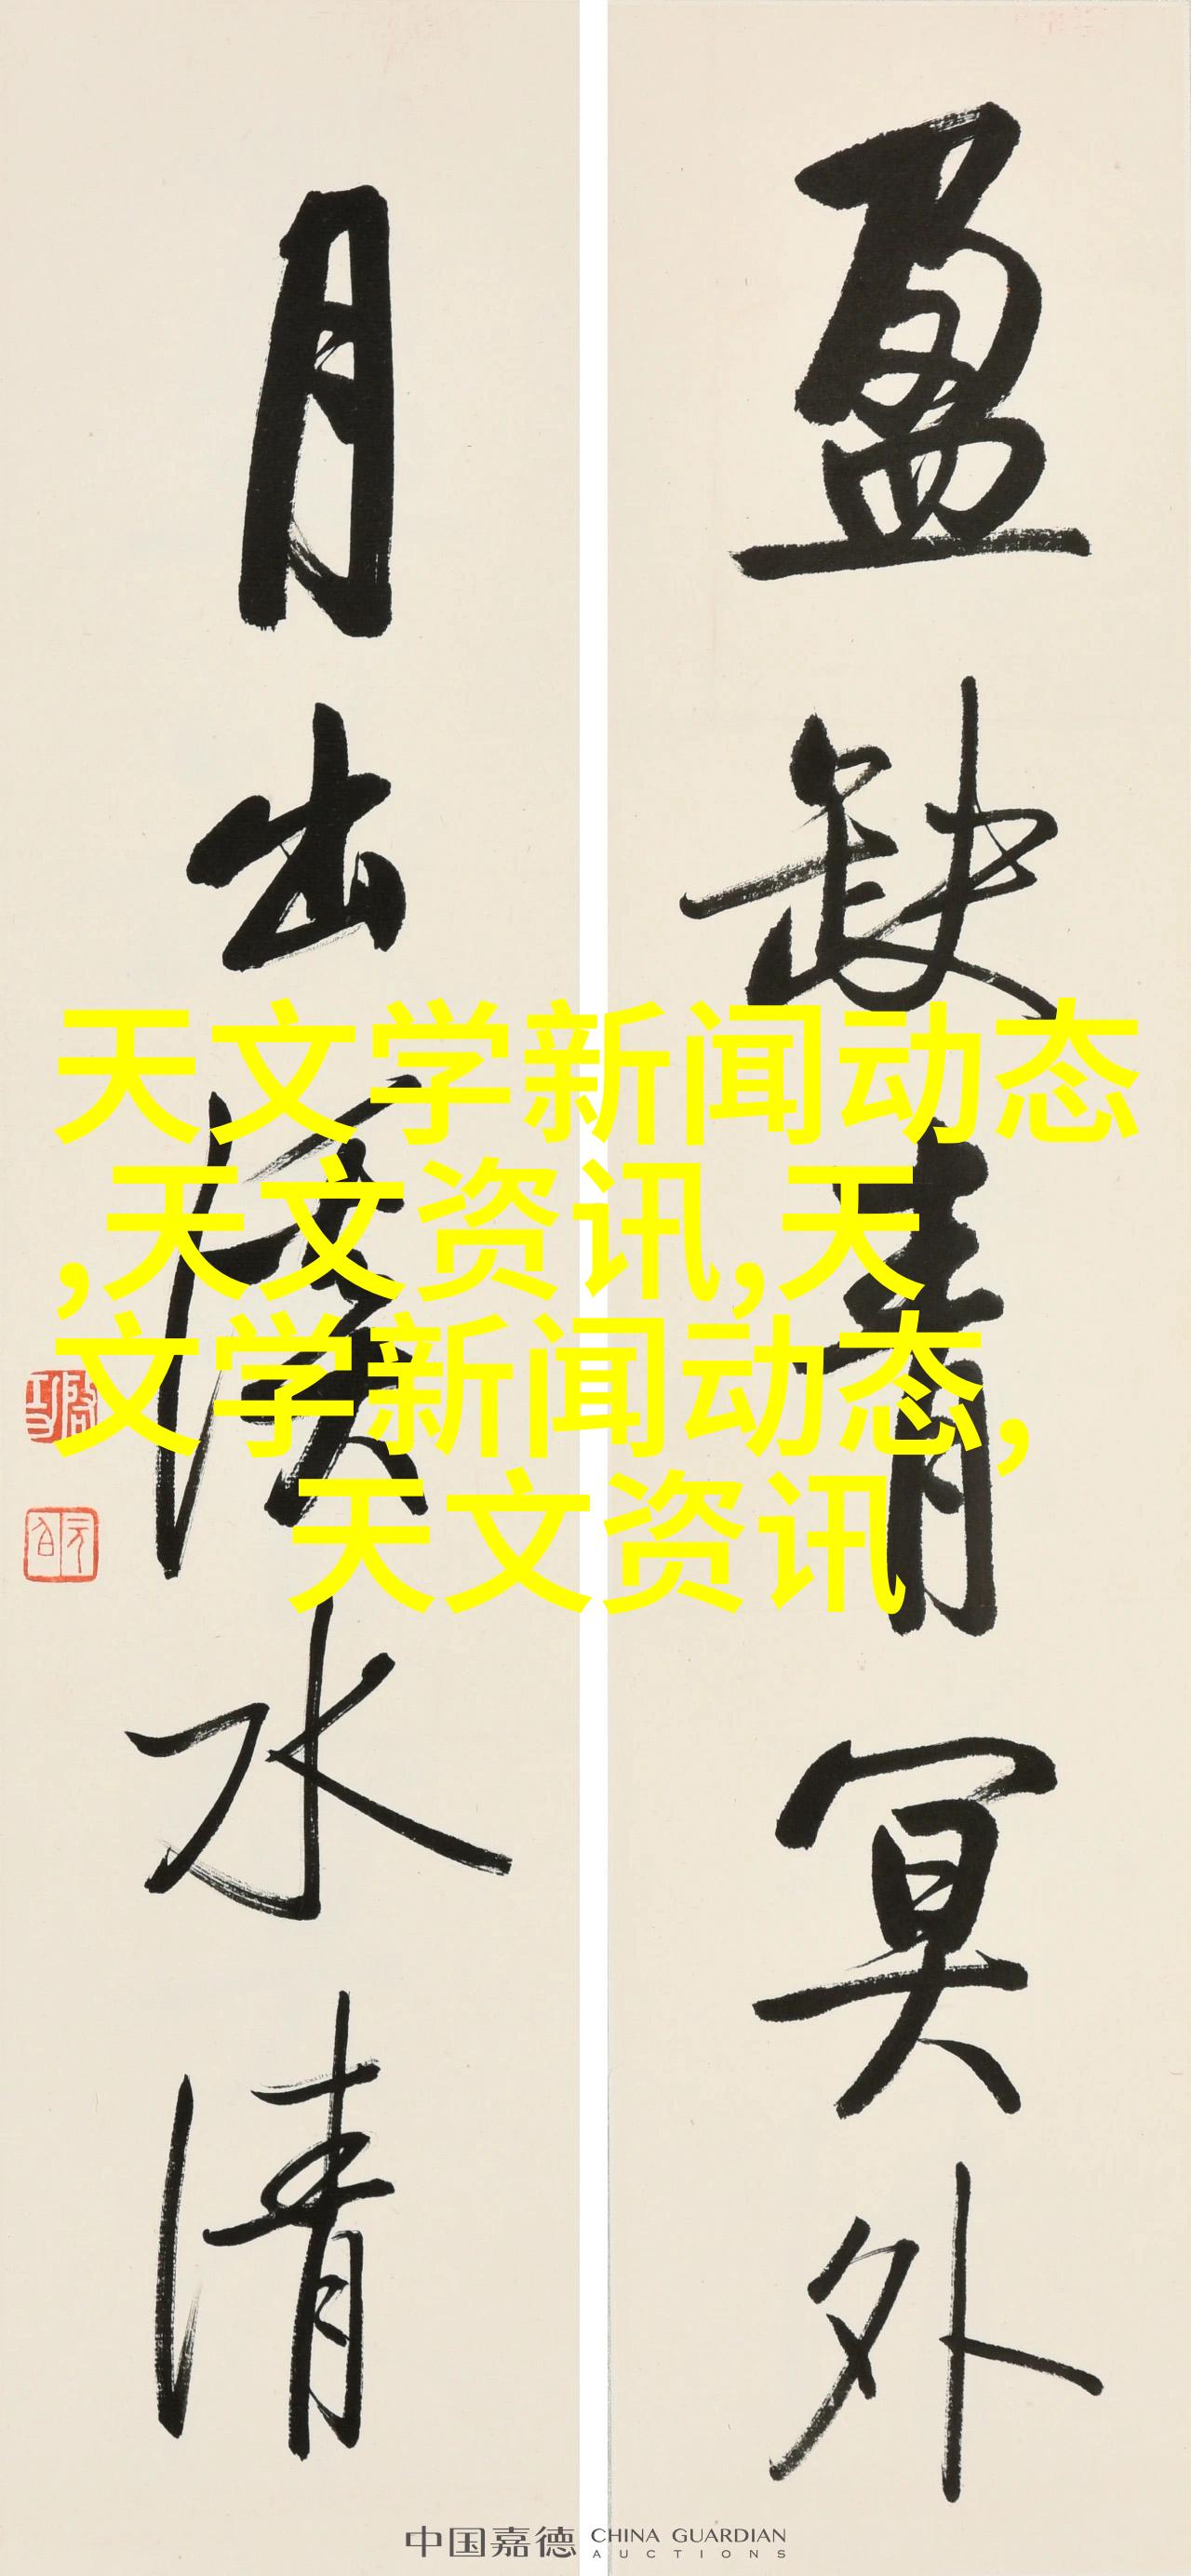 盈缺青冥外
月出溪水清
天文学新闻动态
,天文资讯,天
文学新闻动态,
天文资讯
中国嘉德 CHINA GUARDIAN
AUCTIONS